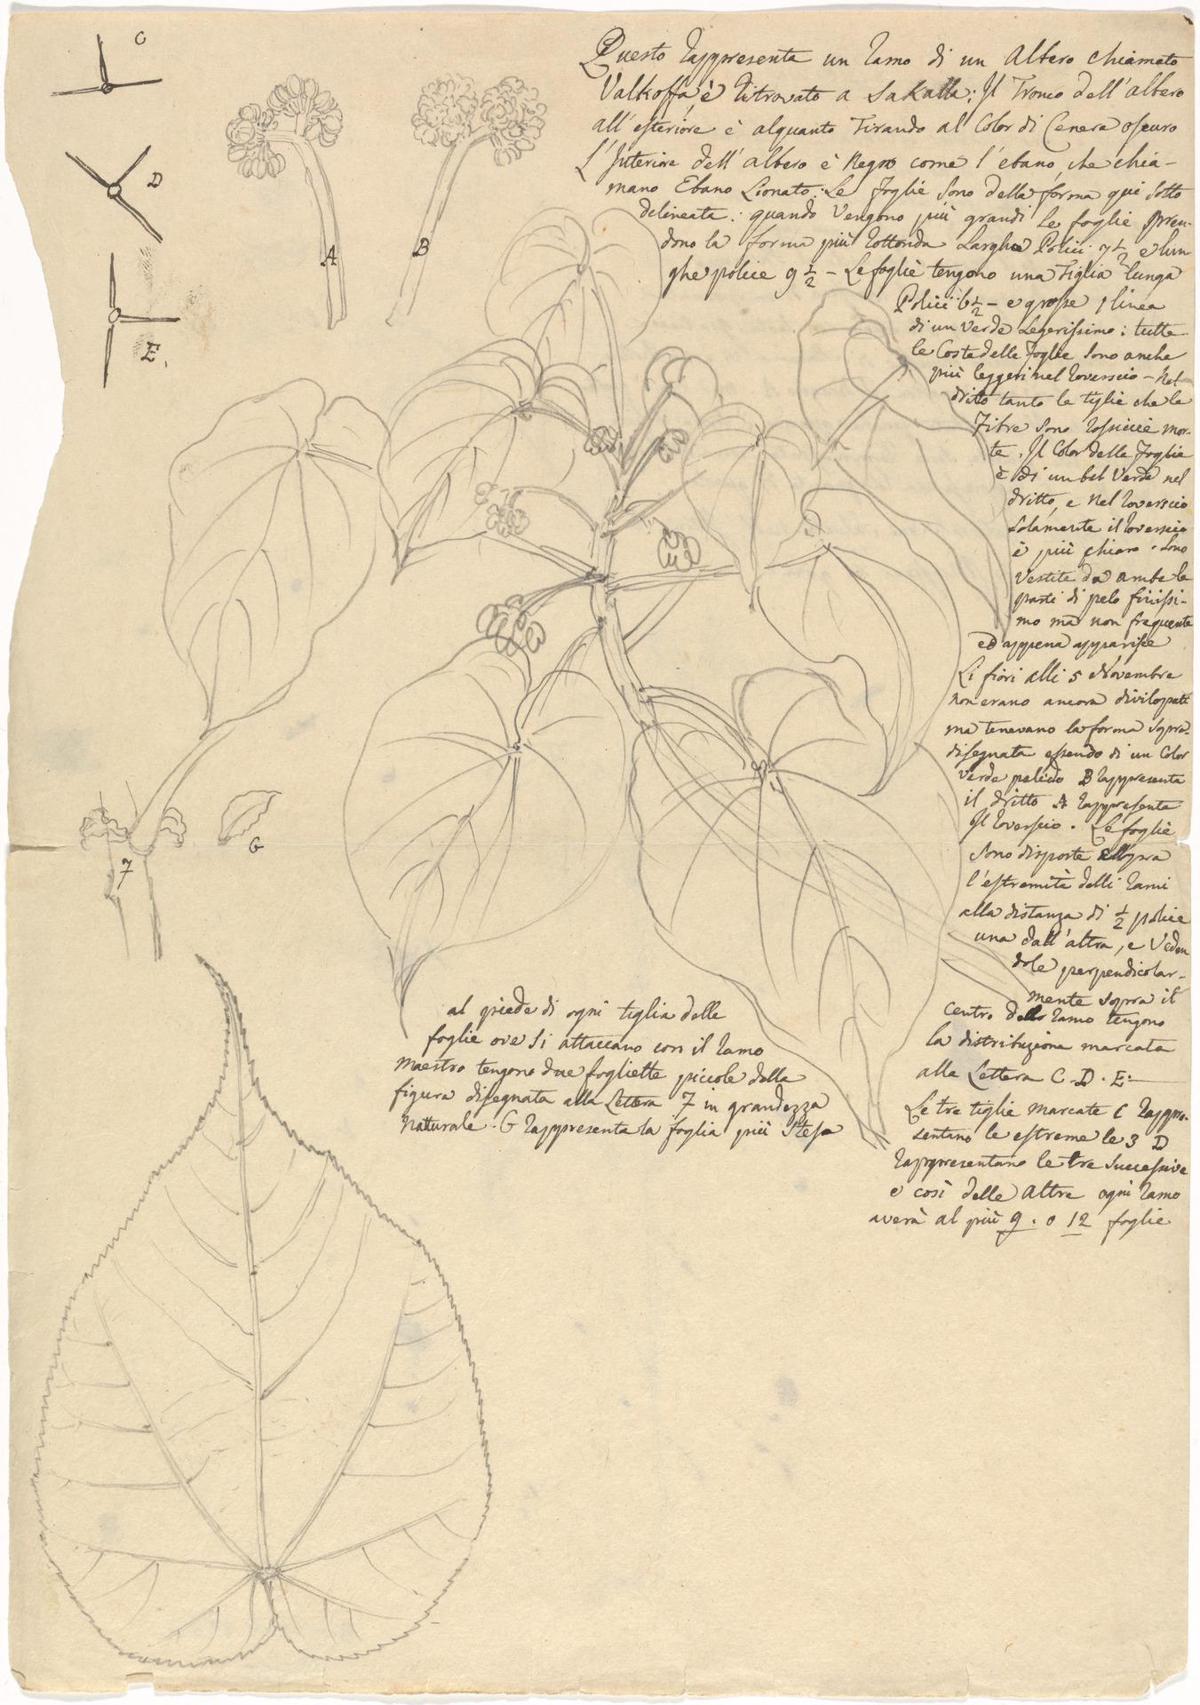 C
D
E.
A
B
7
G
Questo rappresenta un ramo di un Albero chiamato
Valkoffa è ritrovato a Sakalla; Il Tronco dell'albero
all'esteriore è alquanto Tirando al Color di Cenera oscuro
L'Interiore dell'albero è Negro come l'ebano, che chia-
mano Ebano Lionato: Le foglie sono della forma qui sotto
delineata: quando vengono più grandi le foglie pren-
dono la forma più rottonda Larghe Polici 7½ e lun
ghe police 9½ - Le foglie tengono una Tiglia lunga
Polici 6½ - e grosse 1 linea
di un verde Legerissimo: tutte
le Coste delle foglie sono anche
più leggeri nel roverscio - Nel
dritto tanto le tiglie che le
Fibre sono rossiccie mor-
te. Il Color delle foglie
è di un bel verde nel
dritto, e nel roverscio
solamente il roverscio
è più chiaro. Sono
vestite da ambe le
parti di pelo finissi-
mo ma non frequente
ed appena apparisce
Li fiori alli 5 Novembre
non erano ancora divilopati
ma tenevano la forma sopra
disegnata essendo di un Color
verde palido B rappresenta
il dritto A rappresenta
Il roverscio. Le foglie
sono disposte sopra
l'estremità delli rami
alla distanza di ½ police
una dall'altra, e veden
dole perpendicolar-
mente sopra il
centro dello ramo tengono
la distribuzione marcata
alle Lettera C. D. E:
Le tre tiglie marcate C rappre-
sentano le estreme le 3 D
rappresentano le tre successive
e così delle altre ogni ramo
averà al più 9. o 12 foglie
al piede di ogni tiglia delle
foglie ove si attaccano con il ramo
maestro tengono due fogliette piccole della
figura disegnata alla Lettera 7 in grandezza
naturale. G rappresenta la foglia più stesa